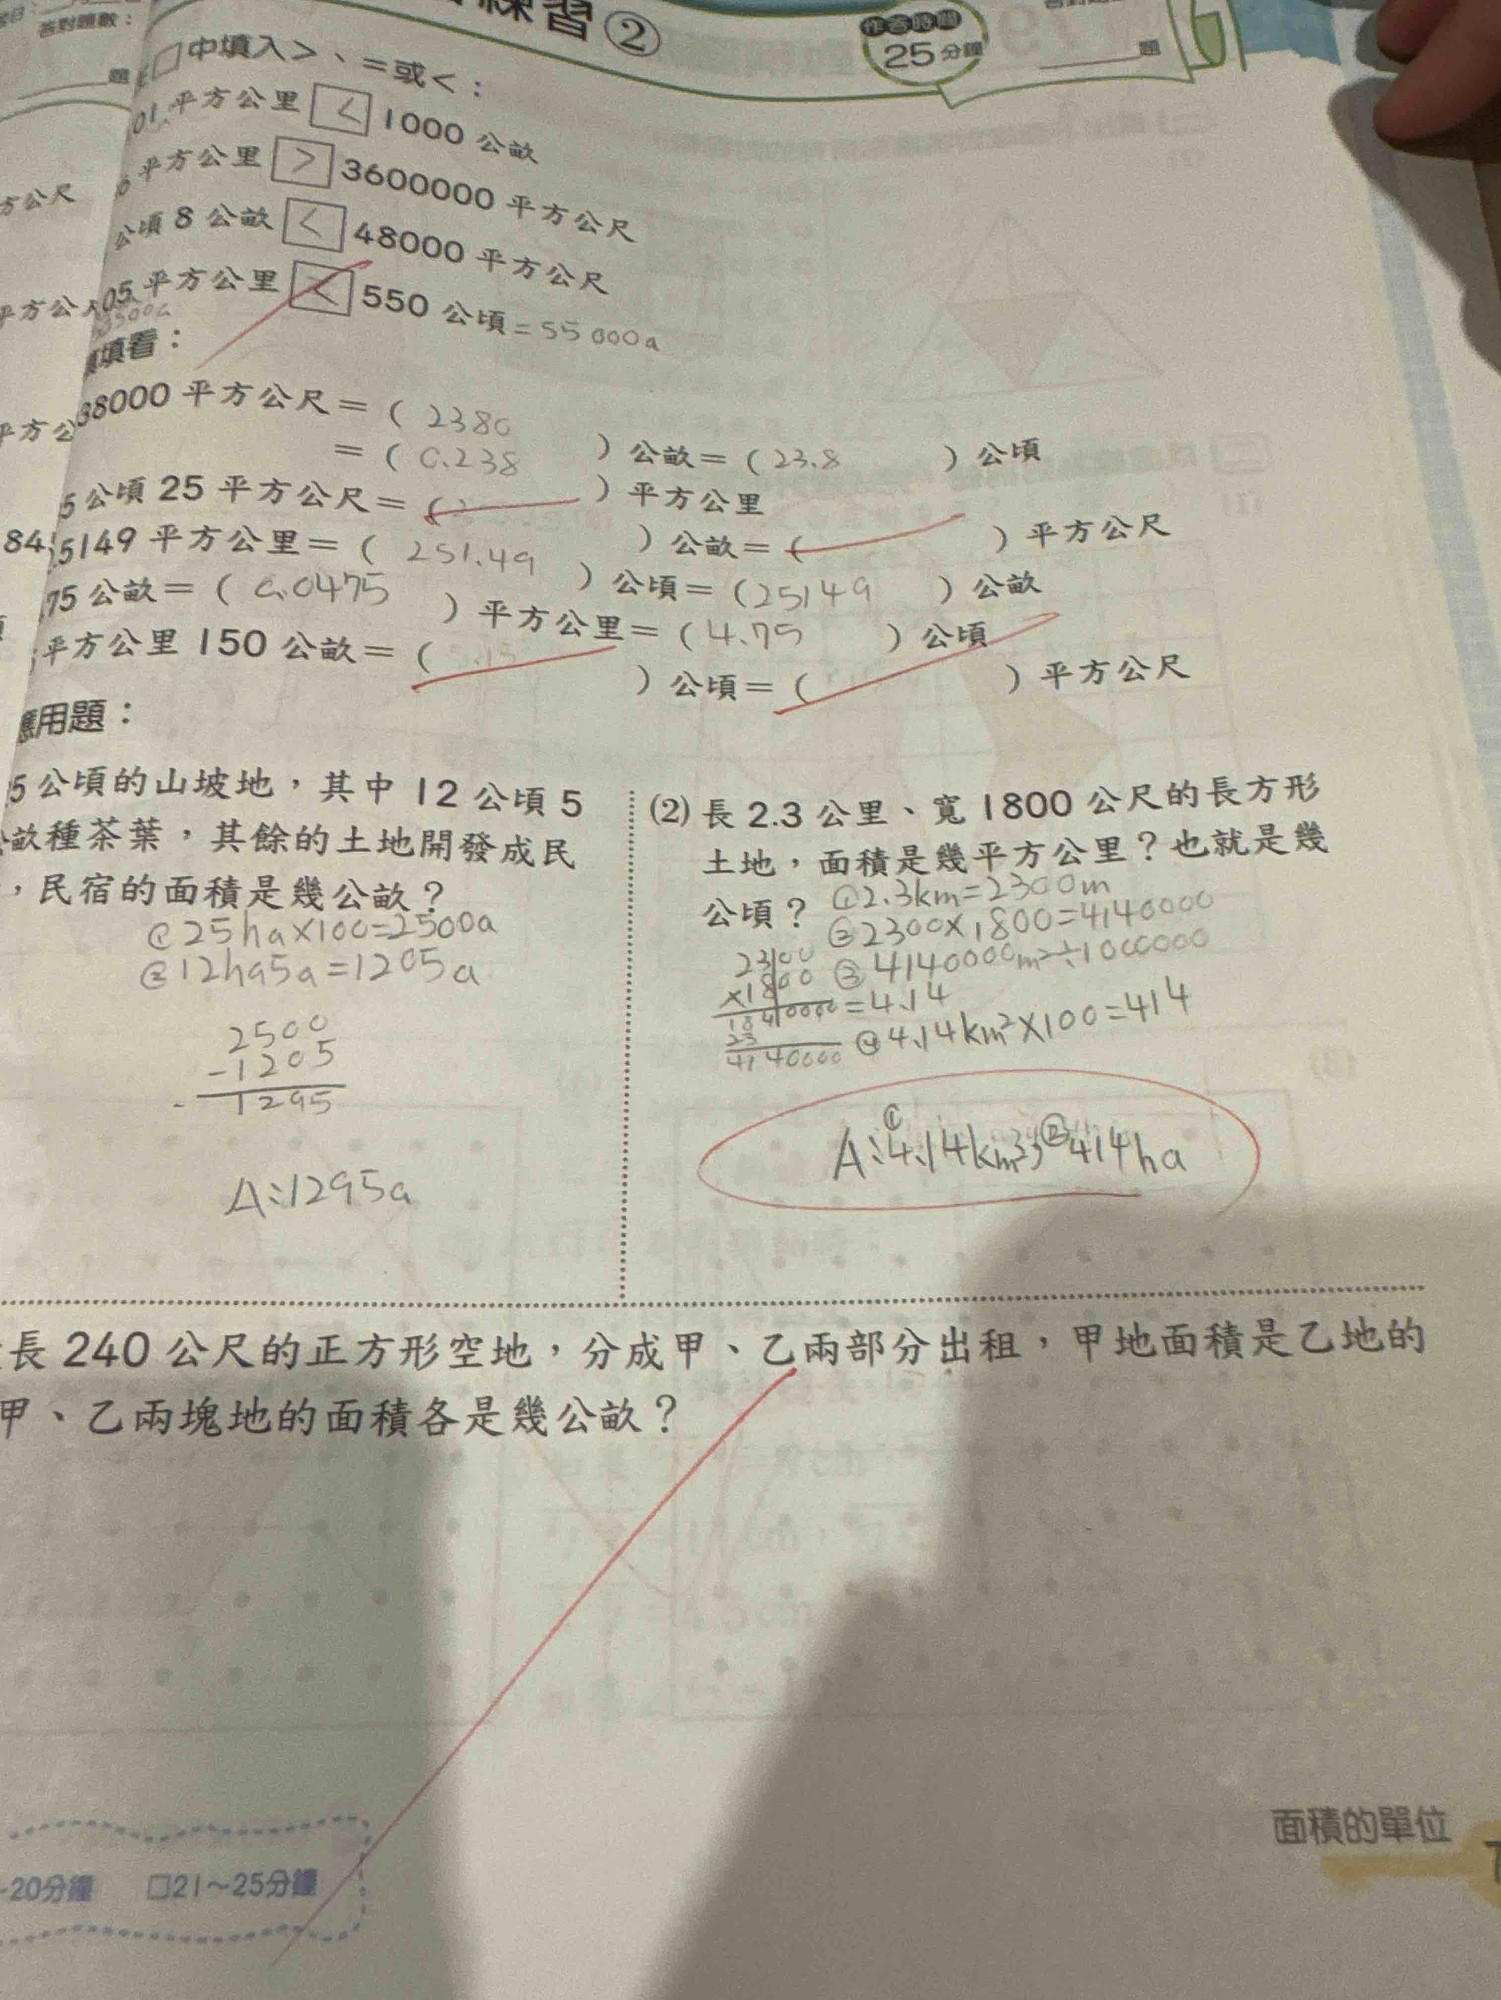 練習②
作答時間
25分鐘
題
答對題數:
題
□中填入>、=或<:
01平方公里 < 1000公畝
平方公里 > 3600000平方公尺
公頃8公畝 < 48000平方公尺
05平方公里 < 550公頃=55000a
填看:
38000平方公尺=(2380)公畝=(23.8)公頃
=(0.238)平方公里
5公頃25平方公尺=( )公畝=( )平方公尺
5149平方公里=(251.49)公頃=(25149)公畝
75公畝=(0.0475)平方公里=(4.75)公頃
平方公里150公畝=( )公頃=( )平方公尺
方公尺
平方公
平方公
84
應用題:
5公頃的山坡地,其中12公頃5
畝種茶葉,其餘的土地開發成民
,民宿的面積是幾公畝?
①25ha×100=2500a
②12ha5a=1205a
2500
-1205
1295
A:1295a
(2)長2.3公里、寬1800公尺的長方形
土地,面積是幾平方公里?也就是幾
公頃?
①2.3km=2300m
②2300×1800=4140000
③4140000m²÷1000000
=4.14
④4.14km²×100=414
2300
×1800
1840000
23
4140000
A:①4.14km²;②414ha
長240公尺的正方形空地,分成甲、乙兩部分出租,甲地面積是乙地的
甲、乙兩塊地的面積各是幾公畝?
20分鐘 □21~25分鐘
面積的單位